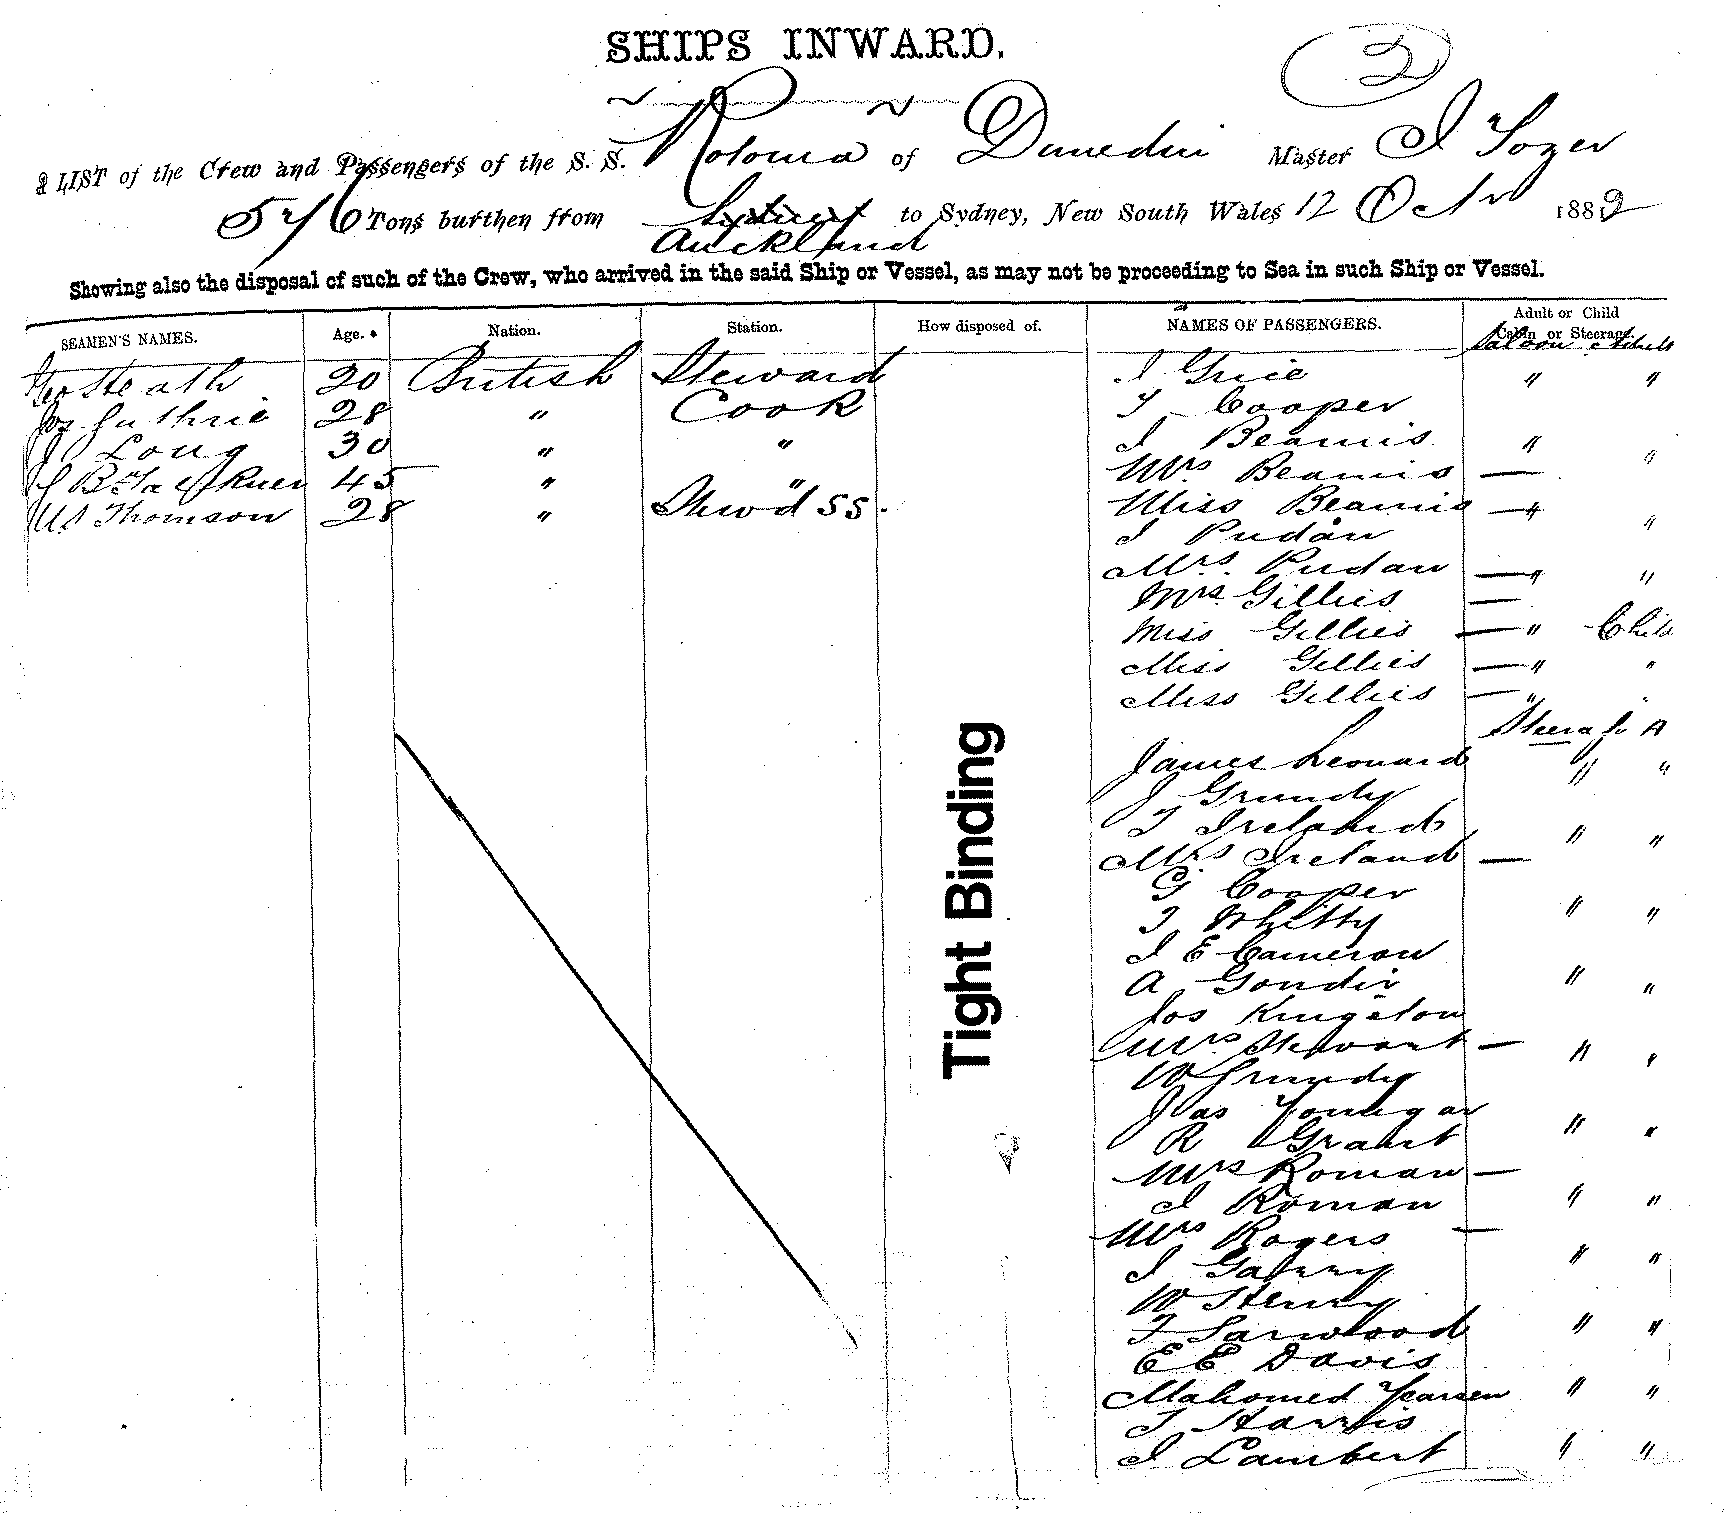 SHIPS INWARD.
2
A LIST of the Crew and Passengers of the S. S. Rotorua of Dunedin Master J Tozer
576 Tons burthen from Auckland to Sydney, New South Wales 12 Octr 1882
Showing also the disposal of such of the Crew, who arrived in the said Ship or Vessel, as may not be proceeding to Sea in such Ship or Vessel.
SEAMEN'S NAMES. Age. Nation. Station. How disposed of. NAMES OF PASSENGERS. Adult or Child
Cabin or Steerage.
Saloon Adult
Heath 20 British Steward J Grice " "
Jos Guthrie 28 " Cook T Cooper
J Long 30 " " J Beamis " "
45 " " Mrs Beamis —
Thomson 28 " Stewd SS. Miss Beamis — "
J Pudan "
Mrs Pudan — " "
Mrs Gillies —
Miss Gillies — " Child
Miss Gillies — " "
Miss Gillies — " "
Steerage A
James Leonard " "
J Grundy
T Ireland " "
Mrs Ireland —
G Cooper
T Whitty " "
J E Cameron
A Gondir " "
Jos Kingston
Mrs Stewart — " "
W Grundy
Jas
R Grant " "
Mrs Roman —
J Roman " "
Mrs Rogers —
J " "
W Henry
T " "
E E Davis
Mahomed " "
T Harris
J Lambert " "
Tight Binding